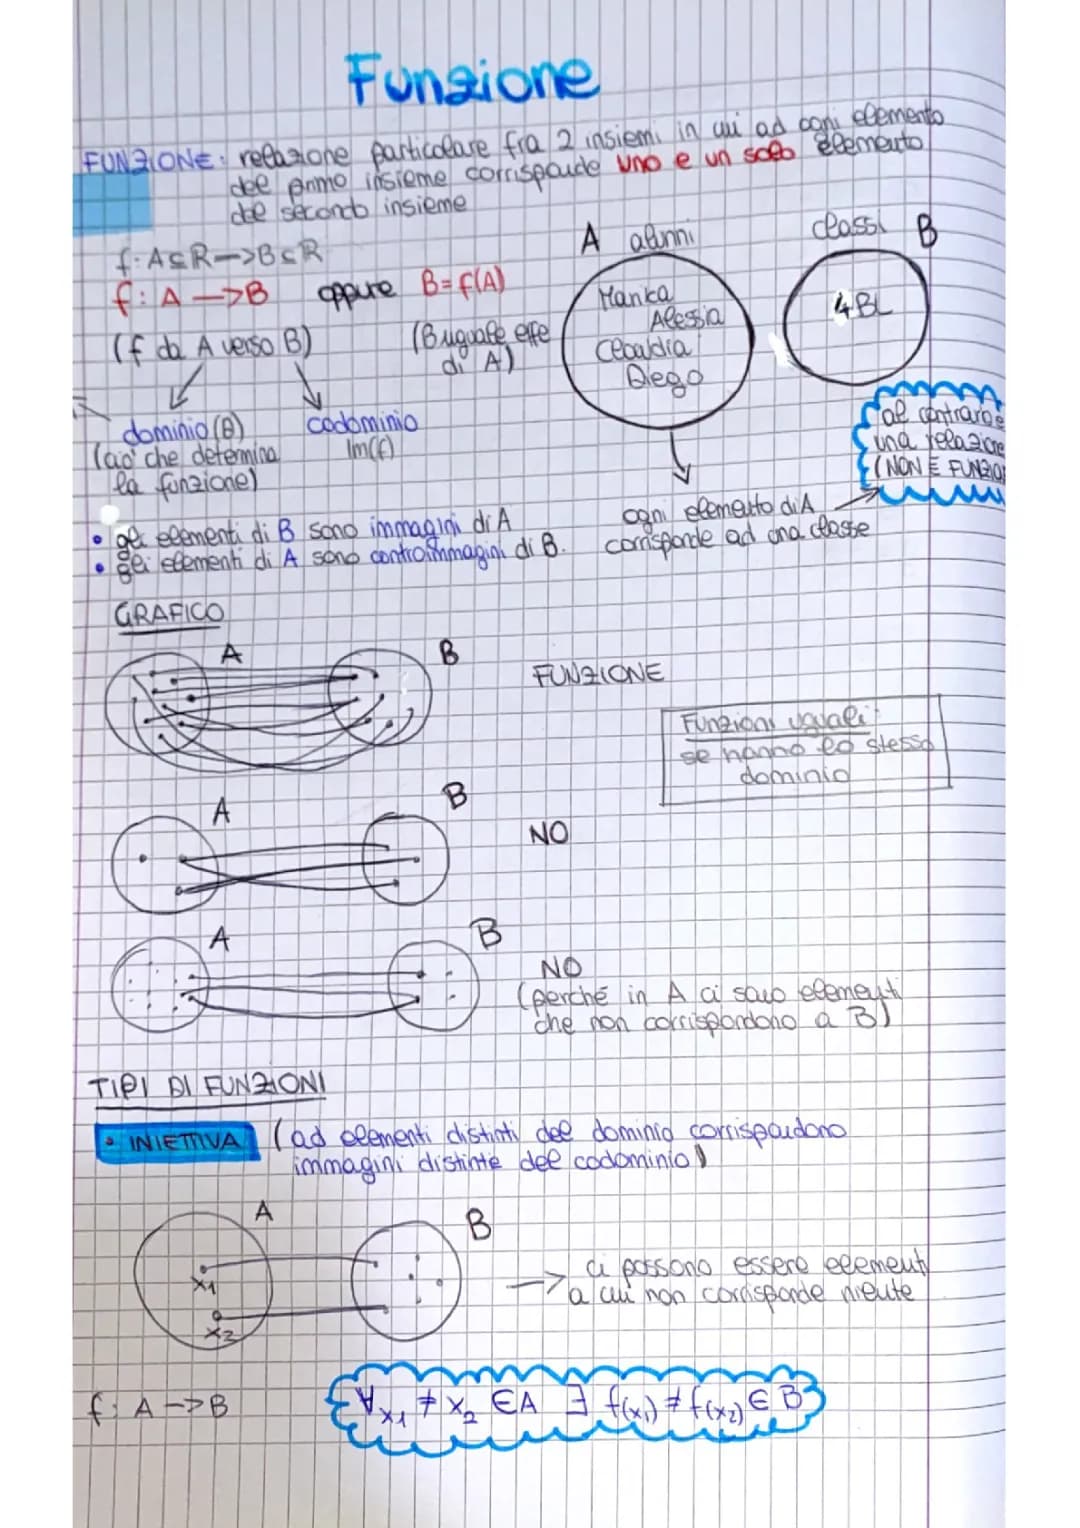 Funzione
FUNZIONE: relazione particolare fra 2 insiemi in cui ad ogni elemento
del primo insieme corrisponde uno e un solo elemento
del secondo insieme
f: A⊆R->B⊆R
f: A->B oppure B=f(A)
(f da A verso B) (B uguale effe
di A)
A alunni
classi B
Alessia
Claudia
Diego
4BL
dominio (D)
(ciò che determina
la funzione)
codominio
Im(f)
al contrario è
una relazione
(NON È FUNZIO
• gli elementi di B sono immagini di A
• gli elementi di A sono controimmagini di B.
ogni elemento di A
corrisponde ad una classe
GRAFICO
A B
FUNZIONE
Funzioni uguali:
se hanno lo stesso
dominio
A B
NO
A B
NO
(perché in A ci sono elementi
che non corrispondono a B)
TIPI DI FUNZIONI
• INIETTIVA (ad elementi distinti del dominio corrispondono
immagini distinte del codominio)
A B
x1
x2
-> ci possono essere elementi
a cui non corrisponde niente
f: A->B
∀x₁ ≠ x₂ ∈A ∃ f(x₁) ≠ f(x₂) ∈ B